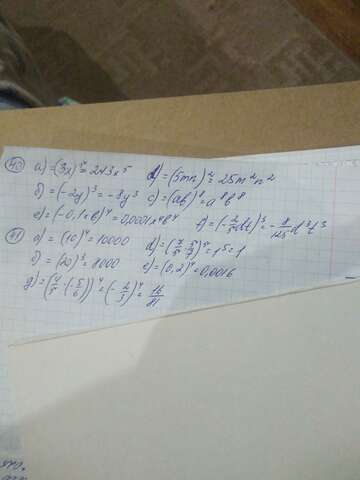 40 а) =(3x)⁵= 243x⁵ d) =(5mn)²= 25m²n²
б) =(-2y)³= -8y³ c) =(ab)⁸=a⁸b⁸
e) =(-0,1xb)⁴=0,0001x⁴b⁴ f) =(-2/5dt)³=-8/125d³t³
41 а) =(10)⁴=10000 d) =(7/5·5/7)⁵=1⁵=1
б) =(20)³=8000 e) =(0,2)⁴=0,0016
g) =(4/5·(-5/6))⁴=(-2/3)⁴=16/81